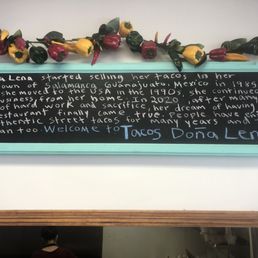 a Lena started selling her tacos in her
own of Salamanca Guanajuato, Mexico in 1985
she moved to the USA in the 1990s, she continued
business, from her home. In 2020, after many
of hard work and sacrifice, her dream of having
restaurant finally came true. People have
thentic Street tacos for many years and
an too. Welcome to Tacos Doña Len